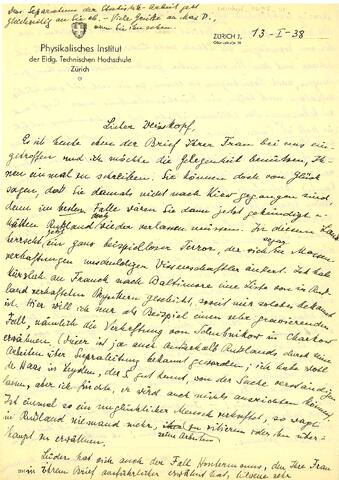 Das Separatum der Arbeit geht
gleichzeitig an Sie ab. - Viele Grüsse an Max D.,
wenn Sie ihn sehen.
Physikalisches Institut
der Eidg. Technischen Hochschule
Zürich
ZÜRICH 7, 13-I-38
Lieber Weisskopf,
Es ist heute eben der Brief Ihrer Frau bei uns ein-
getroffen und ich möchte die Gelegenheit benützen, Ih-
nen einmal zu schreiben. Sie können doch von Glück
sagen, dass Sie damals nicht nach Kiew gegangen sind,
denn im besten Falle wären Sie dann jetzt gekündigt u.
hätten Russland wieder verlassen müssen. In diesem Land
herrscht jetzt ein ganz beispielloser Terror, der sich in Massen-
verhaftungen unschuldiger Wissenschaftler äussert. Ich habe
kürzlich an Franck nach Baltimore eine Liste von in Russ-
land verhafteten Physikern geschickt, soweit mir solches bekannt
ist. Hier will ich nur als Beispiel einen sehr gravierenden
Fall, nämlich die Verhaftung von Schubnikow in Charkow
erwähnen. (Dieser ist ja auch ausserhalb Russlands durch seine
Arbeiten über Supraleitung bekannt geworden; ich habe auch
de Haas in Leyden, der S. gut kennt, von der Sache verständigen
lassen, aber ich fürchte, er wird auch nichts ausrichten können.
Ist einmal so ein unglücklicher Mensch verhaftet, so wagt
in Russland niemand mehr, seine Arbeiten zu zitieren oder ihn über-
haupt zu erwähnen.
Leider hat sich auch der Fall Houtermans, den Ihre Frau
in ihrem Brief ausführlicher erwähnt hat, sehr